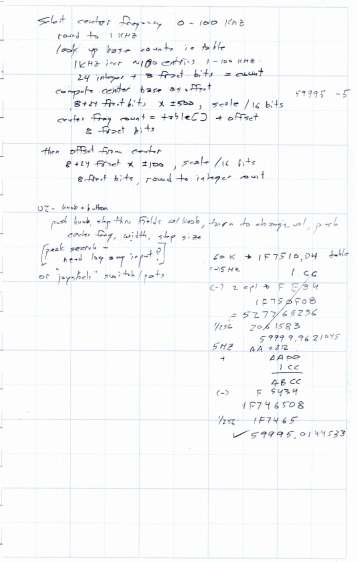 Select center frequency 0-100 KHz
round to 1 KHz
look up base counts in table
1KHz incr 100 entries 1-100 KHz
24 integer + 8 fract bits = count
compute center base as offset
8+24 fract bits x ±500, scale /16 bits
59995 -5
center freq count = table[] + offset
8 fract bits
then offset from center
8+24 fract x ±100, scale /16 bits
8 fract bits, round to integer count
UI - knob + button
push knob, step thru fields w/ knob, turn to change val, push
center freq, width, step size
[peak search -
need log amp input?]
or "joystick" switch/pots
60K → 1F7510,D4 table
-15Hz 1CC
(-) 2 cpl →
1F750F08
= 5277/65236
1/256 2061583
59999.9621045
5Hz AA
+ AA00
1CC
ABCC
(-) F 5434
1F746508
1/256 1F7465
✓ 59995.0144533